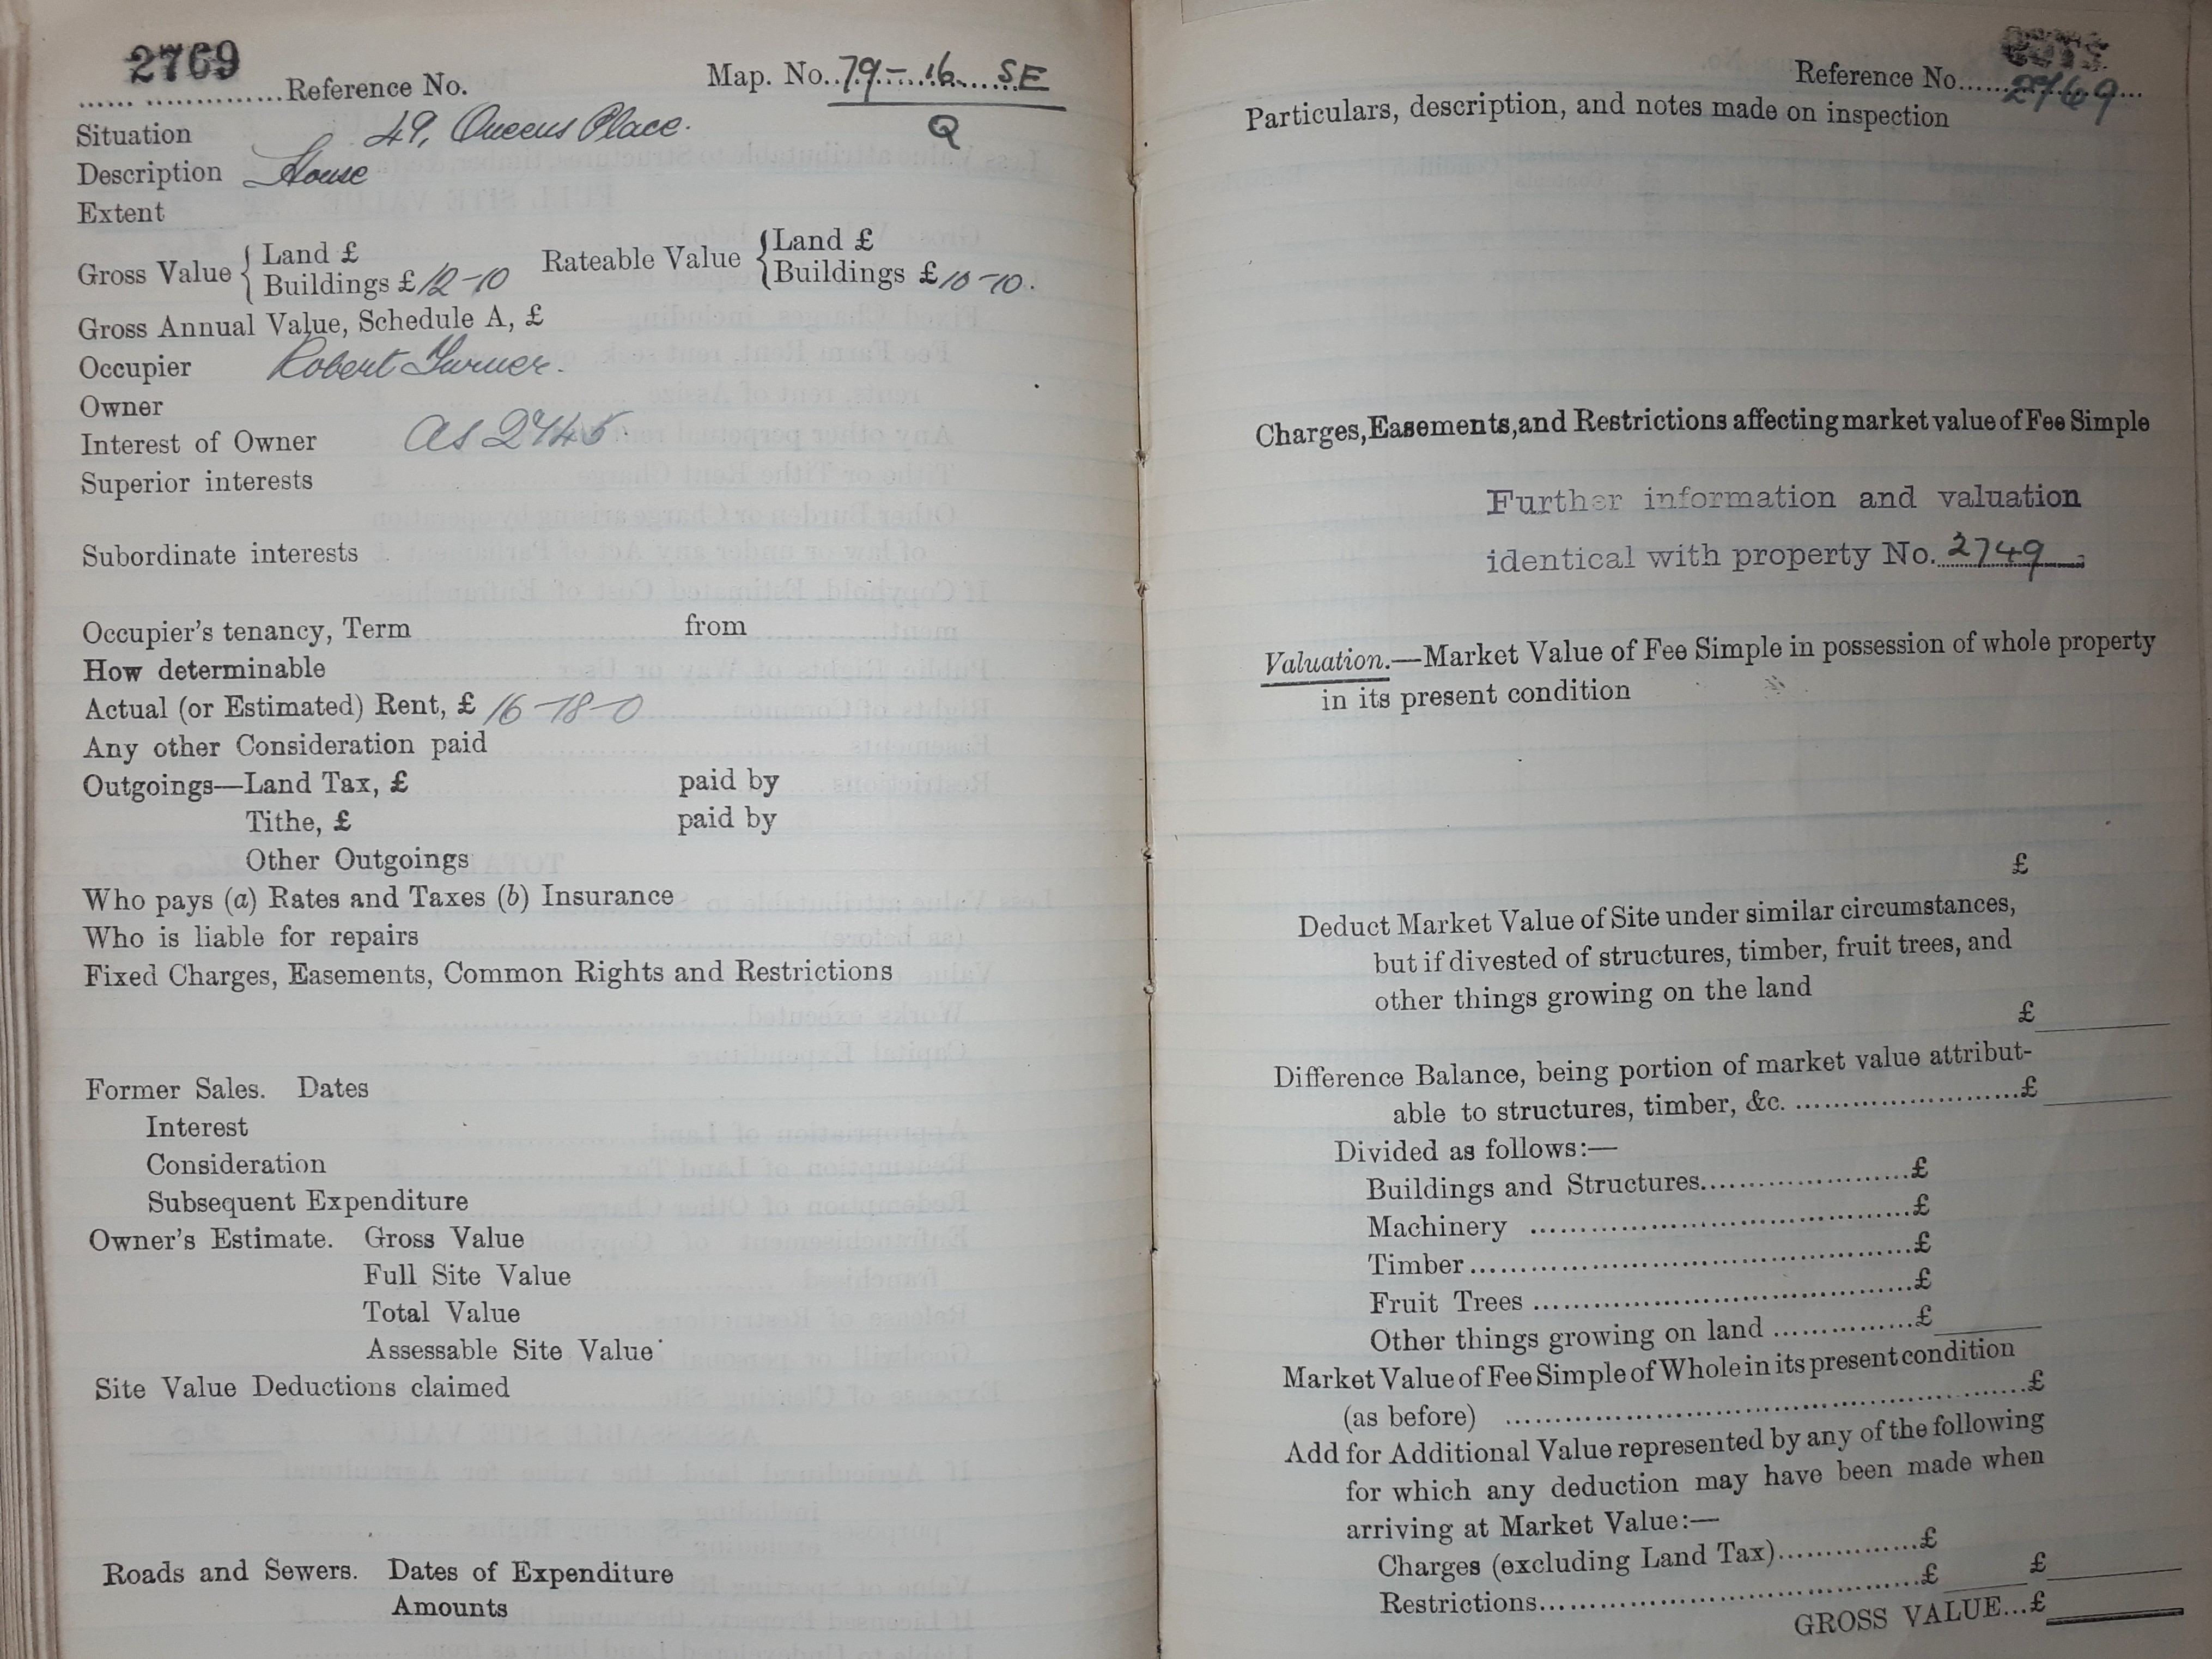 2769
Reference No. Map. No. 79-16 SE
Q
Situation 49, Queens Place.
Description House
Extent
Gross Value { Land £ Rateable Value { Land £
Buildings £ 12-10 Buildings £ 10-10.
Gross Annual Value, Schedule A, £
Occupier Robert Turner.
Owner
Interest of Owner as 2745.
Superior interests
Subordinate interests
Occupier's tenancy, Term from
How determinable
Actual (or Estimated) Rent, £ 16-18-0
Any other Consideration paid
Outgoings—Land Tax, £ paid by
Tithe, £ paid by
Other Outgoings
Who pays (a) Rates and Taxes (b) Insurance
Who is liable for repairs
Fixed Charges, Easements, Common Rights and Restrictions
Former Sales. Dates
Interest
Consideration
Subsequent Expenditure
Owner's Estimate. Gross Value
Full Site Value
Total Value
Assessable Site Value
Site Value Deductions claimed
Roads and Sewers. Dates of Expenditure
Amounts
Reference No. 2769
Particulars, description, and notes made on inspection
Charges, Easements, and Restrictions affecting market value of Fee Simple
Further information and valuation
identical with property No. 2749
Valuation.—Market Value of Fee Simple in possession of whole property
in its present condition
£
Deduct Market Value of Site under similar circumstances,
but if divested of structures, timber, fruit trees, and
other things growing on the land
£
Difference Balance, being portion of market value attribut-
able to structures, timber, &c. £
Divided as follows:—
Buildings and Structures £
Machinery £
Timber £
Fruit Trees £
Other things growing on land £
Market Value of Fee Simple of Whole in its present condition
(as before) £
Add for Additional Value represented by any of the following
for which any deduction may have been made when
arriving at Market Value:—
Charges (excluding Land Tax) £
Restrictions £ £
GROSS VALUE...£